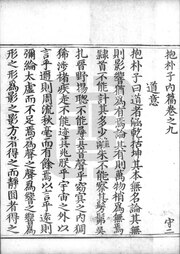 抱朴子內篇卷之九
道意
抱朴子曰道者涵乾括坤其本無名論其無
則影響猶為有焉論其有則萬物尚為無焉
隸首不能計其多少離朱不能察其髣髴吳
札晉野竭聰不能尋其音聲乎窈冥之內獂
狶涉猪疾走不能迹其兆朕乎宇宙之外以
言乎邇則周流秋毫而有餘焉以言乎遠則
彌綸太虛而不足焉為聲之聲為響之響為
形之形為影之影方者得之而靜圓者得之